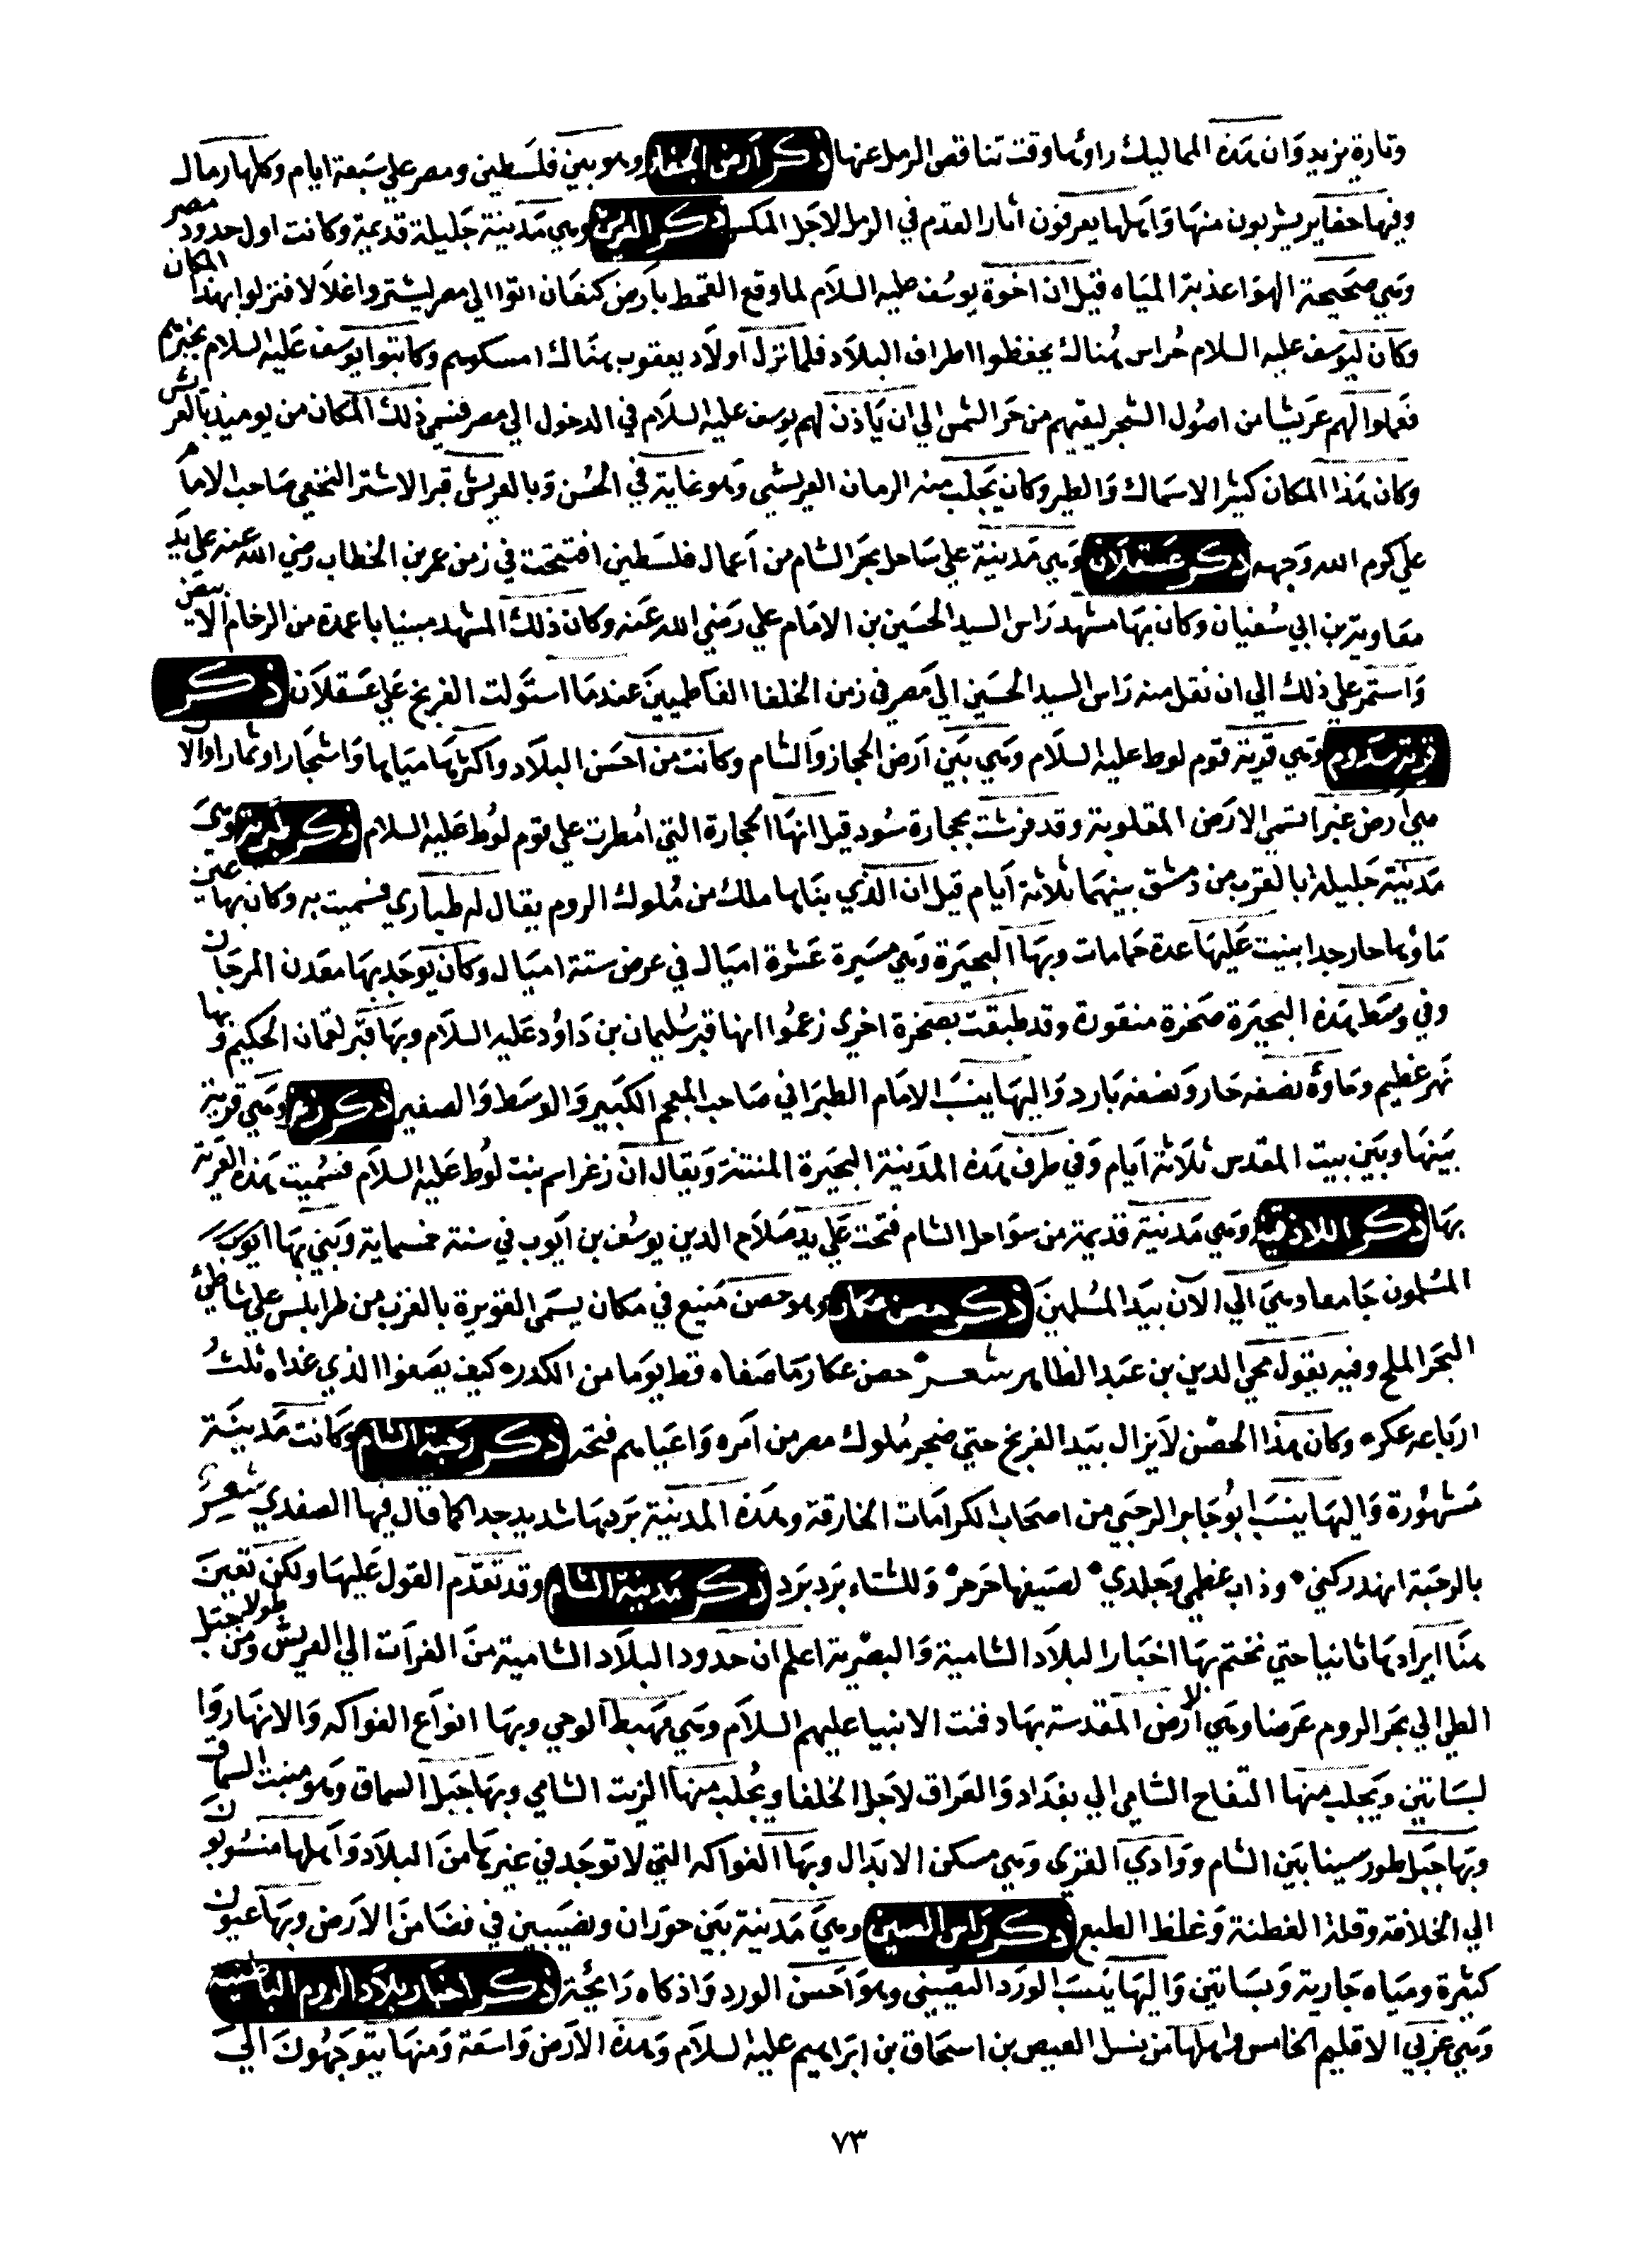 وتارة يزيد وان هذه المماليك راوها وقت تناقص الرمل عنها ذكر ارض الجفار وهو بين فلسطين ومصر علي سبعة ايام وكلها رمال
وفيها حفاير يشربون منها واهلها يعرفون اثار القدم في الرمل لاجل المكس ذكر العريش وهي مدينة جليلة قديمة وكانت اول حدود مصر
وهي صحيحة الهوا عذبة المياه قيل ان اخوة يوسف عليه السلام لما وقع القحط بارض كنعان اتوا الي مصر ليشتروا غلالا فنزلوا بهذا المكان
وكان ليوسف عليه السلام حراس هناك يحفظوا اطراف البلاد فلما نزل اولاد يعقوب هناك امسكوهم وكاتبوا يوسف عليه السلام بخبرهم
فعملوا لهم عريشا من اصول الشجر ليقيهم من حر الشمس الي ان ياذن لهم يوسف عليه السلام في الدخول الي مصر فسمي ذلك المكان من يوميذ بالعريش
وكان هذا المكان كثير الاسماك والطير وكان يجلب منه الرمان العريشي وهو غاية في الحسن وبالعريش قبر الاشتر النخعي صاحب الامام
علي كرم الله وجهه ذكر عسقلان وهي مدينة علي ساحل بحر الشام من اعمال فلسطين افتتحت في زمن عمر بن الخطاب رضي الله عنه علي يد
معاوية بن ابي سفيان وكان بها مشهد راس السيد الحسين بن الامام علي رضي الله عنه وكان ذلك المشهد مبنيا باعمدة من الرخام الابيض
واستمر علي ذلك الي ان نقل منه راس السيد الحسين الي مصر في زمن الخلفا الفاطميين عندما استولت الفرنج علي عسقلان ذكر
قرية سدوم وهي قرية قوم لوط عليه السلام وهي بين ارض الحجاز والشام وكانت من احسن البلاد واكثرها مياها واشجارا وثمارا والان
هي ارض غبرا تسمي الارض المقلوبة وقد فرشت بحجارة سود قيل انها الحجارة التي امطرت علي قوم لوط عليه السلام ذكر طبرية وهي
مدينة جليلة بالقرب من دمشق بينهما ثلاثة ايام قيل ان الذي بناها ملك من ملوك الروم يقال له طباري فسميت به وكان بها عين
ماؤها حار جدا بنيت عليها عدة حمامات وبها البحيرة وهي مسيرة عشرة اميال في عرض ستة اميال وكان يوجد بها معدن المرجان
وفي وسط هذه البحيرة صخرة منقورة وقد طبقت بصخرة اخري زعموا انها قبر سليمان بن داؤد عليه السلام وبها قبر لقمان الحكيم وبها
نهر عظيم وماؤه نصفه حار ونصفه بارد واليها ينسب الامام الطبراني صاحب المعجم الكبير والوسط والصغير ذكر زغر وهي قرية
بينها وبين بيت المقدس ثلاثة ايام وفي طرف هذه المدينة البحيرة المنتنة ويقال ان زغر اسم بنت لوط عليه السلام فسميت هذه القرية
بها ذكر اللاذقية وهي مدينة قديمة من سواحل الشام فتحت علي يد صلاح الدين يوسف بن ايوب في سنة خمسماية وبني بها ايوب
المسلمون جامعا وهي الي الآن بيد المسلمين ذكر حصن عكار وهو حصن منيع في مكان يسمي القويرة بالقرب من طرابلس علي شاطئ
البحر الملح وفيه يقول محي الدين بن عبد الظاهر شعر حصن عكار ما صفاه قط يوما من الكدره كيف يصفوا الذي غداه ثلث
ارباعه عكره وكان هذا الحصن لا يزال بيد الفرنج حتي ضجر ملوك مصر من امره واعياهم فتحه ذكر رحبة الشام وكانت مدينة
مشهورة واليها ينسب ابو جابر الرحبي من اصحاب الكرامات الخارقة وهذه المدينة بردها شديد جدا كما قال فيها الصفدي شعر
بالرحبة انهد ركني وذاب عظمي وجلدي لصيفها حر حر وللشتاء برد برد ذكر مدينة الشام وقد تقدم القول عليها ولكن تعين
هنا ايرادها ثانيا حتي نختم بها اخبار البلاد الشامية والبصرية اعلم ان حدود البلاد الشامية من الفرات الي العريش طولا ومن جبل
الطي الي بحر الروم عرضا وهي الارض المقدسة بها دفنت الانبيا عليهم السلام وهي مهبط الوحي وبها انواع الفواكه والانهار وا
لبساتين ويجلب منها التفاح الشامي الي بغداد والعراق لاجل الخلفا ويجلب منها الزيت الشامي وبها جبل السماق وهو منبت السماق
وبها جبل طور سينا بين الشام ووادي القري وهي مسكن الابدال وبها الفواكه التي لا توجد في غيرها من البلاد واهلها منسوبون
الي الخلافة وقلة الفطنة وغلظ الطبع ذكر راس العين وهي مدينة بين حوران ونصيبين في فضا من الارض وبها عيون
كثيرة ومياه جارية وبساتين واليها ينسب الورد النصيبيني وهو احسن الورد واذكاه رايحة ذكر اخبار بلاد الروم الباطنية
وهي غربي الاقليم الخامس واهلها من نسل العيص بن اسحاق بن ابراهيم عليه السلام وهذه الارض واسعة ومنها يتوجهون الي
٧٣